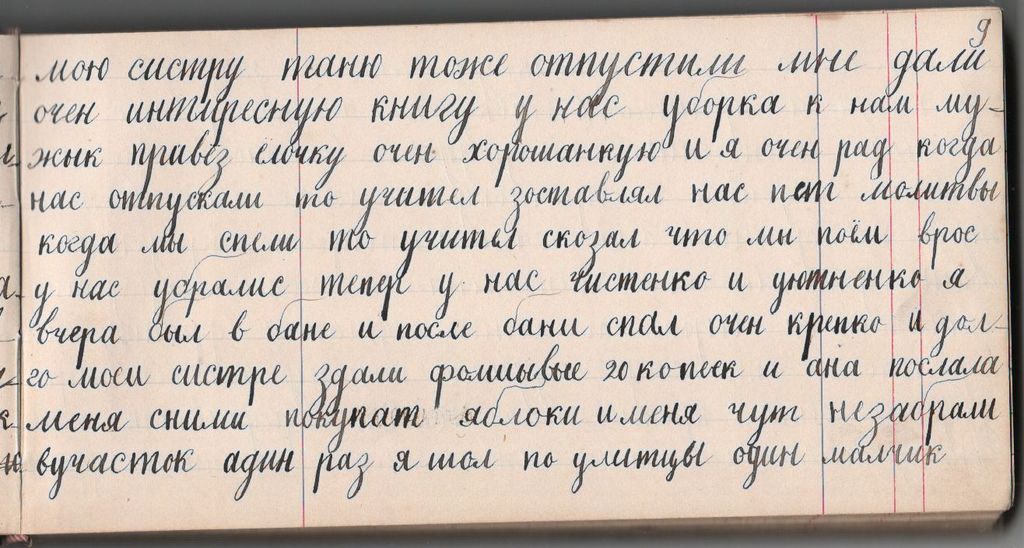 9
мою систру таню тоже отпустили мне дали
очен интиресную книгу у нас уборка к нам му-
жык правёз ёлочку очен хорошанкую и я очен рад когда
нас отпускали то учител зоставлял нас пет молитвы
когда мы спели то учител скозал что мы поём врос
у нас убралис тепер у нас чистенко и уютненко я
вчера был в бане и после бани спал очен крепко и дол-
го моей систре здали фолшывые 20 копеек и ана послала
меня сними покупат яблоки и меня чут незабрали
вучасток адин раз я шол по улитцы один малчик